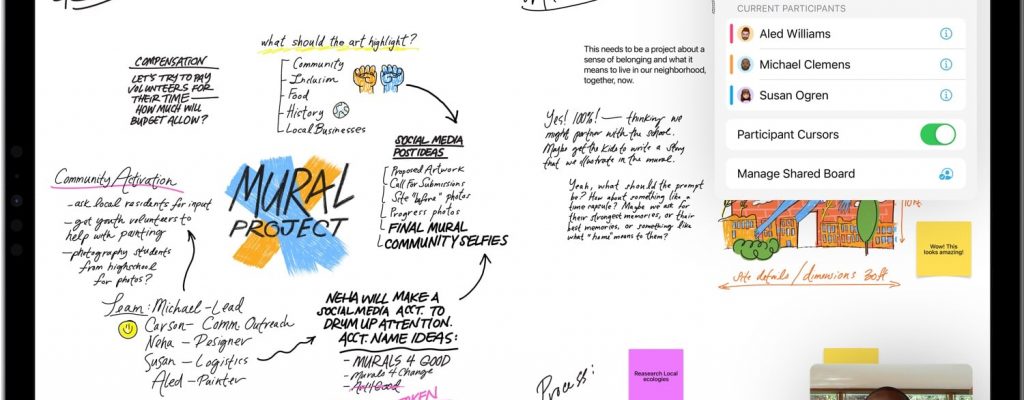 COMPENSATION
LET'S TRY TO PAY
VOLUNTEERS FOR
THEIR TIME —
HOW MUCH WILL
BUDGET ALLOW?
what should the art highlight?
Community
Inclusion
Food
History
Local Businesses
SOCIAL MEDIA
POST IDEAS
Proposed Artwork
Call for Submissions
Site "before" photos
Progress photos
FINAL MURAL
COMMUNITY SELFIES
MURAL
PROJECT
Community Activation
- ask local residents for input
- got youth volunteers to
help with painting
- photography students
from highschool
for photos?
Team: Michael - Lead
Carson - Comm. Outreach
Neha - Designer
Susan - Logistics
Aled - Painter
NEHA WILL MAKE A
SOCIAL MEDIA ACCT. TO
DRUM UP ATTENTION.
ACCT. NAME IDEAS:
- MURALS 4 GOOD
- Murals 4 Change
- Art 4 Good
This needs to be a project about a
sense of belonging and what it
means to live in our neighborhood,
together, now.
Yes! 100%! — thinking we
might partner with the school.
Maybe get the kids to write a story
that we illustrate in the mural.
Yeah, what should the prompt
be? How about something like a
time capsule? Maybe we ask for
their strongest memories, or their
best memories, or something like
what "home" means to them?
CURRENT PARTICIPANTS
Aled Williams
Michael Clemens
Susan Ogren
Participant Cursors
Manage Shared Board
10ft
Wow! This
looks amazing!
Site details / dimensions 30ft
Process:
Reasearch Local
ecologies